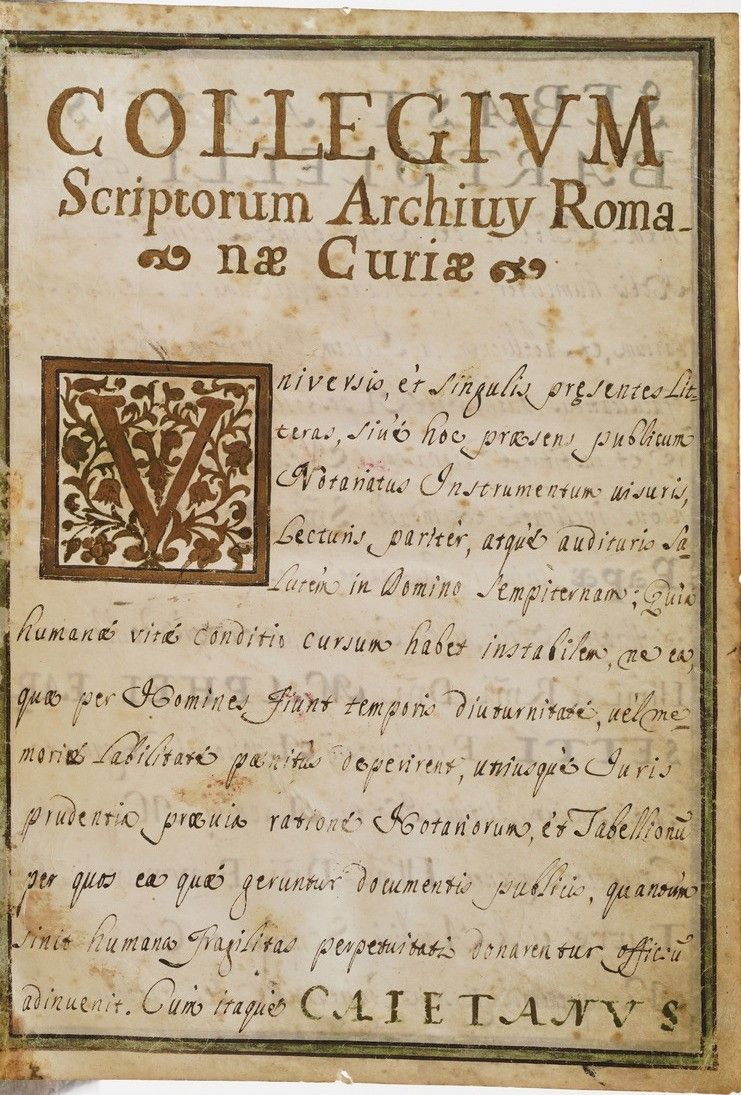 COLLEGIVM
Scriptorum Archiuy Roma-
næ Curiæ
Vniversis, et singulis pręsentes Lit-
teras, sivé hoc præsens publicum
Notariatus Instrumentum uisuris,
Lecturis paritér, atqué audituris Sa-
lutem in Domino Sempiternam; Quia
humanæ vitæ conditio cursum habet instabilem, ne ea,
quæ per Homines fiunt temporis diuturnitaté, vél me-
moriæ Labilitaté pænitùs deperirent, utriusqué Iuris
prudentia prævia rationé Notariorum, ét Tabellionū
per quos ea quæ geruntur documentis publicis, quantùm
sinit humana fragilitas perpetuitati donarentur officiū
adinuenit. Cùm itaqué CAIETANVS